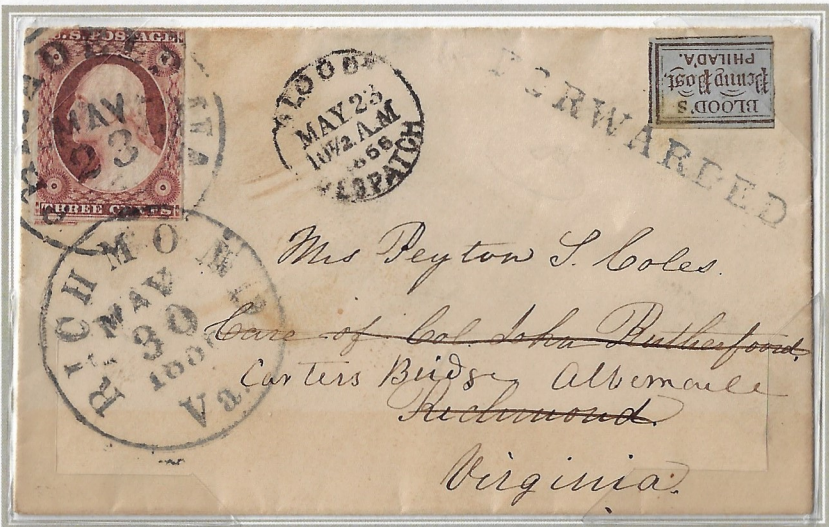 U.S. POSTAGE
THREE CENTS
PHILADELPHIA
MAY
23
BLOOD'S
MAY 23
10½ A.M
1856
DESPATCH
FORWARDED
BLOOD'S
Penny Post,
PHILAD'A.
RICHMOND Va
MAY
30
1856
Mrs Peyton S. Coles.
Care of Col. John Rutherfoord,
Carters Bridge Albemarle
Richmond.
Virginia.